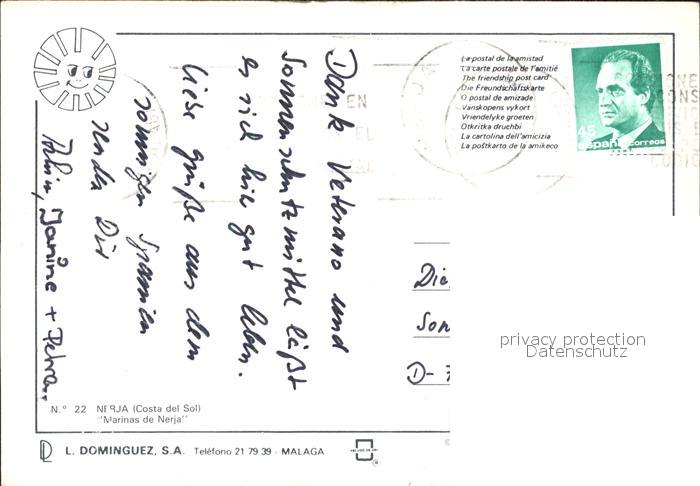 La postal de la amistad
La carte postale de l'amitié
The friendship post card
Die Freundschaftskarte
O postal de amizade
Vanskopens vykort
Vriendelyke groeten
Otkritka druchbi
La cartolina dell'amicizia
La poŝtkarto de la amikeco
45
españa correos
Dank Veterano und
Sonnenschutzmittel läßt
es sich hier gut leben.
Liebe Grüße aus dem
sonnigen Spanien
senden Dir
Janine + Petra
Die
Son
D-7
privacy protection
Datenschutz
N.° 22 NERJA (Costa del Sol)
"Marinas de Nerja"
L. DOMINGUEZ, S.A. Teléfono 21 79 39 - MALAGA